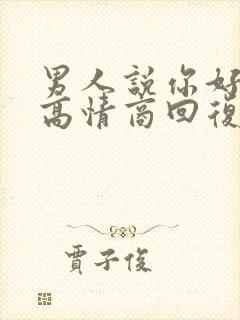 男人說你好
高情商回復
賈子俊